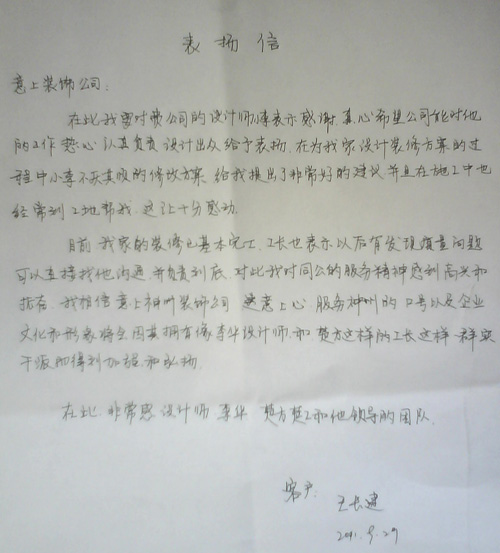 表扬信
意上装饰公司:
在此我要对贵公司的设计师小李表示感谢,真心希望公司能对他
的工作热心,认真负责,设计出众给予表扬,在为我家设计装修方案的过
程中小李不厌其烦的修改方案,给我提出了非常好的建议并且在施工中也
经常到工地帮我,这让十分感动.
目前,我家的装修已基本完工,工长也表示以后有发现质量问题
可以直接找他沟通,并负责到底,对此我对公的服务精神感到高兴和
我相信意上神州装饰公司 意上心,服务神州的口号以及企业
文化和形象将会因其拥有像李华设计师,和楚方这样的工长这样一群实
干派而得到加强和弘扬.
在此,非常感设计师 李华 楚方楚工和他领导的团队.
客户:
王长建
9.29